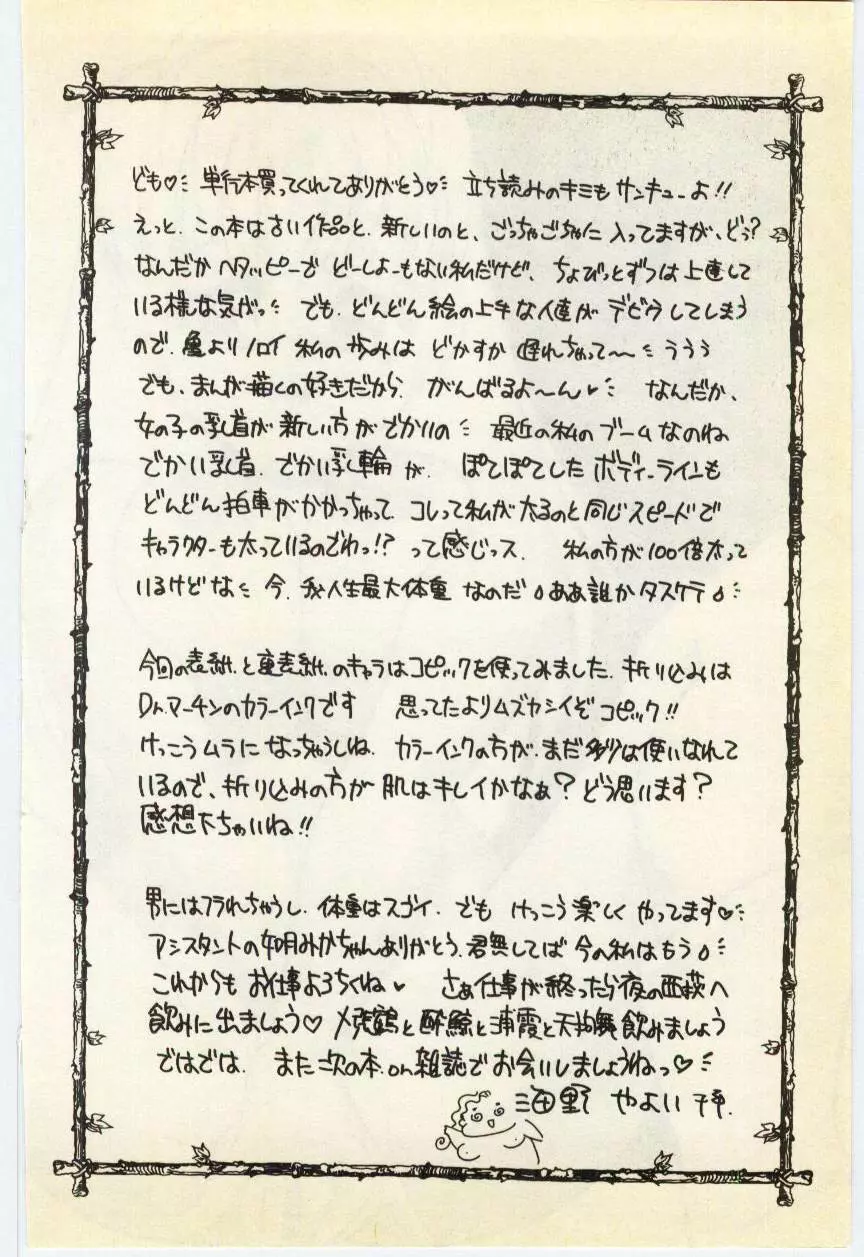 ども♡ 単行本買ってくれてありがとう♡ 立ち読みのキミもサンキューよ!!
えっと、この本は古い作品と、新しいのと、ごっちゃごちゃに入ってますが、どぅ?
なんだかヘタッピーでどーしよーもない私だけど、ちょびっとずつは上達して
いる様な気がっ でも、どんどん絵の上手な人達がデビウしてしまう
ので、亀よりノロイ私の歩みは どかすか遅れちゃって〜 ううう
でも、まんが描くの好きだから、がんばるよ〜ん♥ なんだか、
女の子の乳首が新しい方がでかいの 最近の私のブームなのね
でかい乳首、でかい乳輪が、ぽてぽてしたボディーラインも
どんどん拍車がかかっちゃって、コレって私が太るのと同じスピードで
キャラクターも太っているのでわっ!? って感じっス、 私の方が100倍太って
いるけどな 今、我人生最大体重なのだ ああ誰かタスケテ
今回の表紙と裏表紙のキャラはコピックを使ってみました、折り込みは
Dr.マーチンのカラーインクです 思ってたよりムズカシイぞコピック!!
けっこうムラになっちゃうしね、カラーインクの方が、まだ多少は使いなれて
いるので、折り込みの方が肌はキレイかなぁ? どう思います?
感想下ちゃいね!!
男にはフラれちゃうし、体重はスゴイ、でも けっこう楽しくやってます♡
アシスタントの如月みかちゃんありがとう、君無してば今の私はもう
これからもお仕事よろちくね♥ さぁ仕事が終ったら夜の西荻へ
飲みに出ましょう♡ 〆張鶴と酔鯨と浦霞と天狗舞飲みましょう
ではでは、また次の本、on雑誌でお会いしましょうねっ♡
海野 やよい 拝.